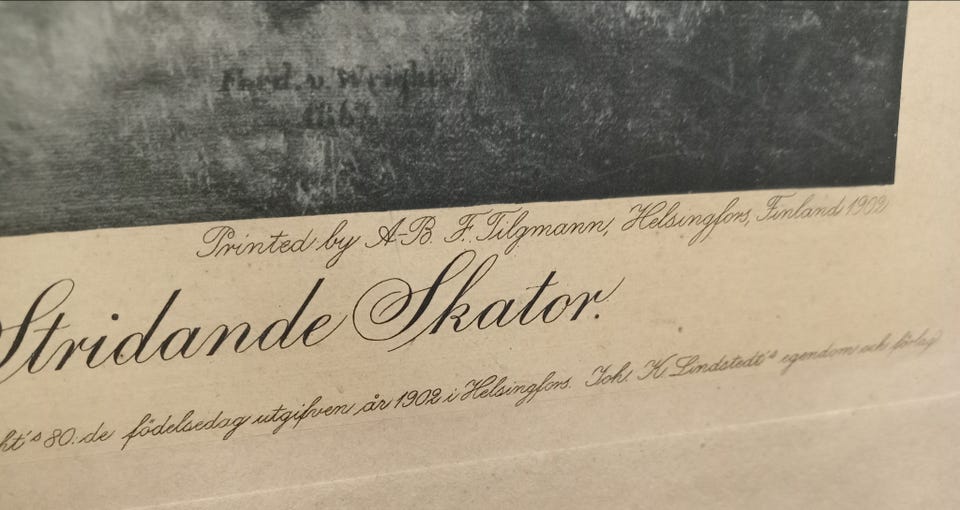 Ferd. v. Wright
Printed by A-B. F. Tilgmann, Helsingfors, Finland 1902
Stridande Skator.
ht's 80.de födelsedag utgifven år 1902 i Helsingfors. Joh. K Lindstedt's egendom och förlag